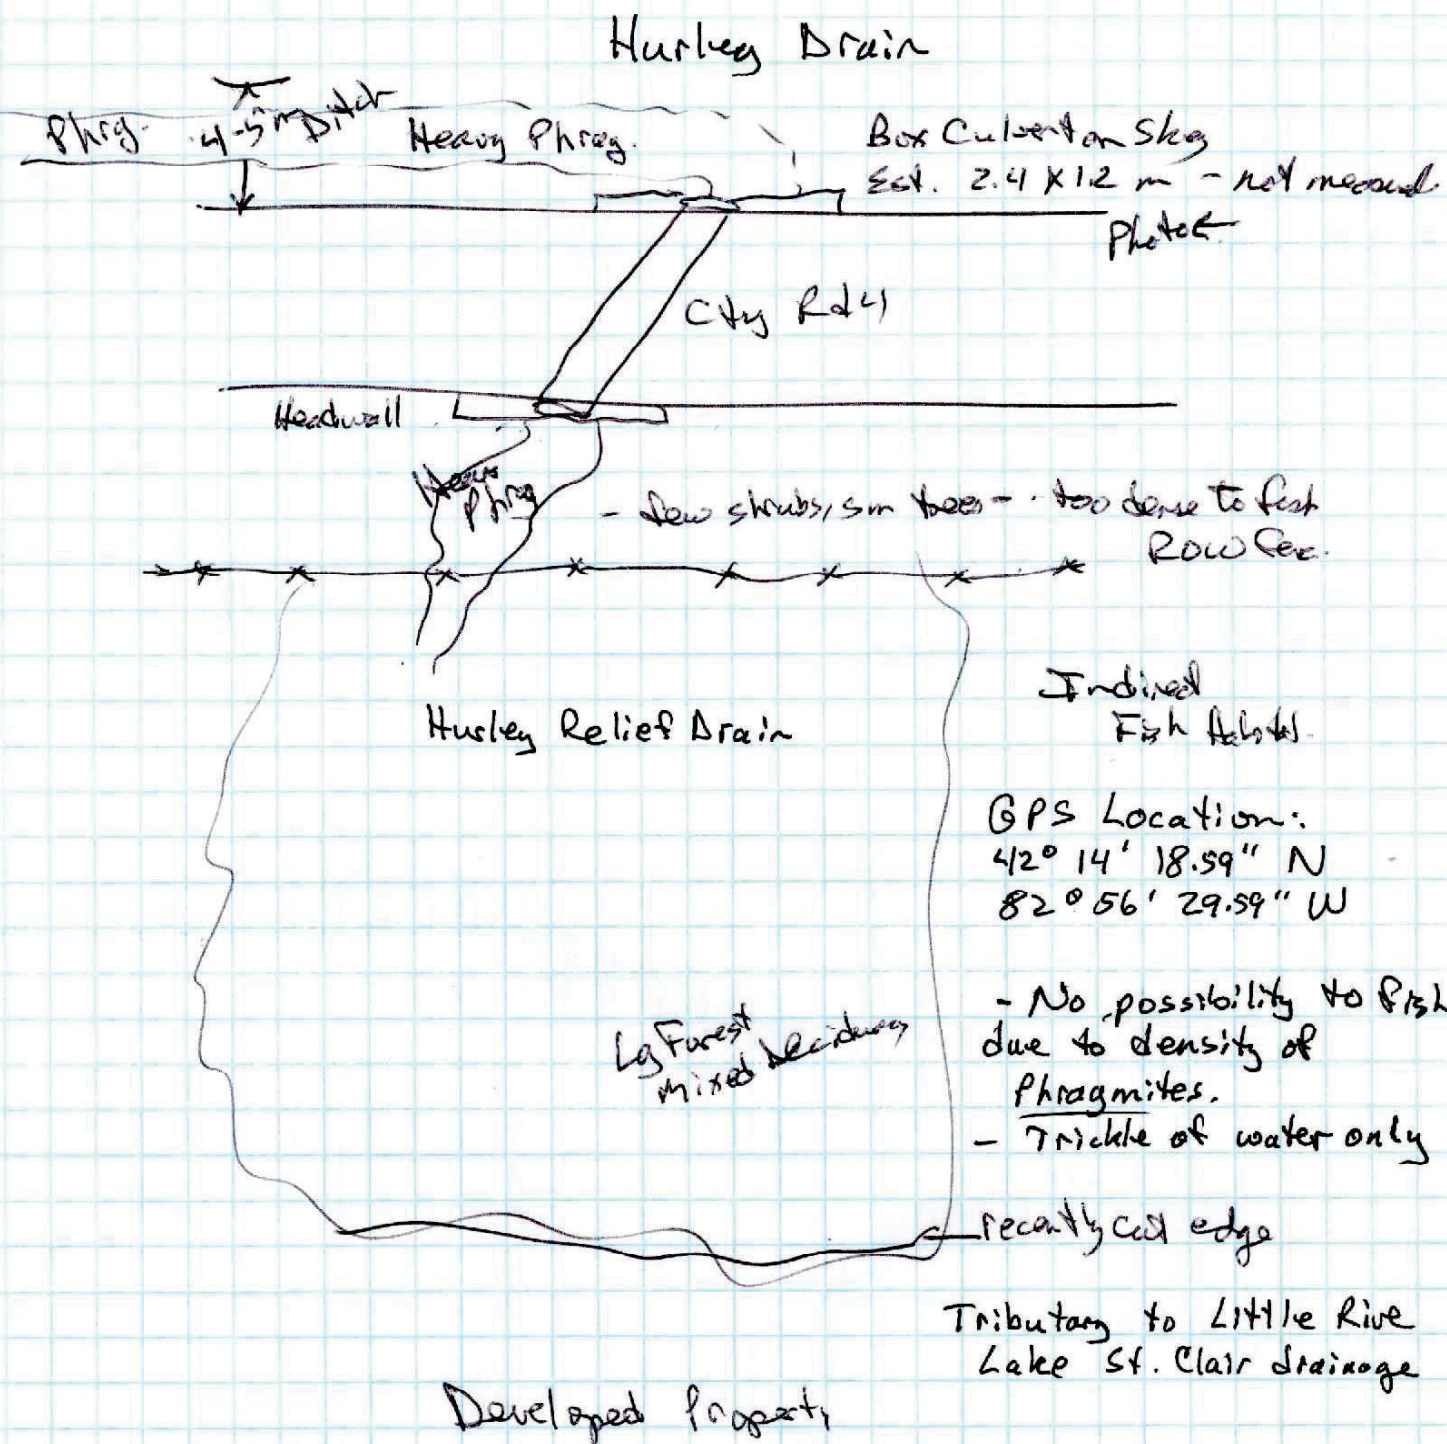 Hurley Drain
Phrg. 4-5m Ditch Heavy Phrag.
Box Culvert on Skew
Est. 2.4 X 1.2 m - not measured
Photo
Cty Rd 41
Headwall
Heavy
Phrag
- few shrubs, sm trees - too dense to fish
ROW
Hurley Relief Drain
Indirect
Fish Habitat.
GPS Location:
42° 14' 18.59" N
82° 56' 29.59" W
- No possibility to fish
due to density of
Phragmites.
- Trickle of water only
Lg Forest
Mixed Deciduous
recently cut edge
Tributary to Little Rive
Lake St. Clair drainage
Developed Property